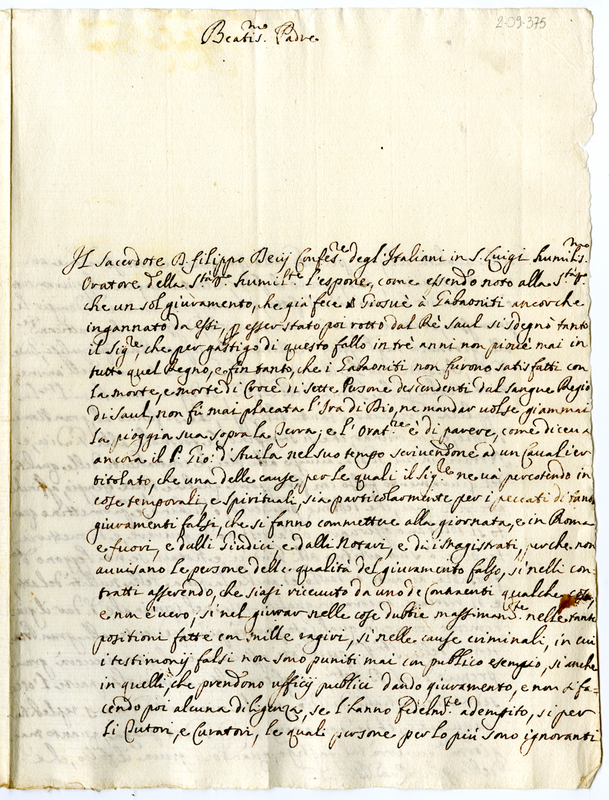 2-09-375
Beatis.mo Padre
Il Sacerdote D. filippo Beiij Confes.re degl'Italiani in S. Luigi humilis.mo
Oratore della S.tà V.ra humil.te l'espone, come essendo noto alla S.tà V.
che un sol giuramento, che già fece Giosuè à Gabaoniti ancorche
ingannato da essi, p esser stato poi rotto dal Rè Saul si sdegnò tanto
il Sig.re, che per gastigo di questo fallo in trè anni non piovè mai in
tutto quel Regno, e fin tanto, che i Gabaoniti non furono satisfatti con
la morte, e morte di Croce di sette Persone descendenti dal sangue Regio
di Saul, non fù mai placata l'Ira di Dio, ne mandar volse giammai
la pioggia sua sopra la Terra, e l'Orat.re è di parere, come diceva
ancora il P. Gio: d'Avila nel suo tempo scrivendone ad un Cavalier
titolato, che una delle cause, per le quali il Sig.re ne và percotendo in
cose temporali, e spirituali, sia particolarmente per i peccati di tanti
giuramenti falsi, che si fanno commettere alla giornata, e in Roma
e fuori, e dalli Giudici, e dalli Notari, e da i Magistrati, perche non
avvisano le persone delle qualità del giuramento falso, si nelli con
tratti asserendo, che siasi ricevuto da uno de Contraenti qualche cosa,
e non è vero, si nel giurar nelle cose dubbie massimam.te nelle tante
positioni fatte con mille ragiri, si nelle cause criminali, in cui
i testimonij falsi non sono puniti mai con publico esempio, si anche
in quelli, che prendono ufficij publici dando giuramento, e non fa-
cendo poi alcuna diligenza, se l'hanno fedelm.te adempito, si per
li Tutori, e Curatori, le quali persone per lo più sono ignoranti